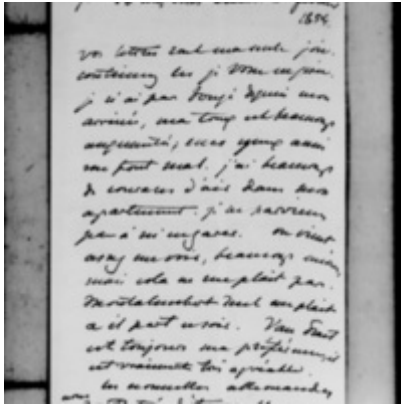 1854.
vos lettres sont ma seule joie.
continuez les je vous en prie.
je n'ai pas bougé depuis mon
arrivée, ma toux est beaucoup
augmentée, mes yeux aussi
me font mal. j'ai beaucoup
de courans d'air dans mon
apartement. je ne
pas à m'en garer. on vient
assez me voir, beaucoup
mais cela ne me plait pas.
seul me plait
a il part ce soir. Van
est toujours ma
et vraiment très agréable.
les nouvelles allemandes